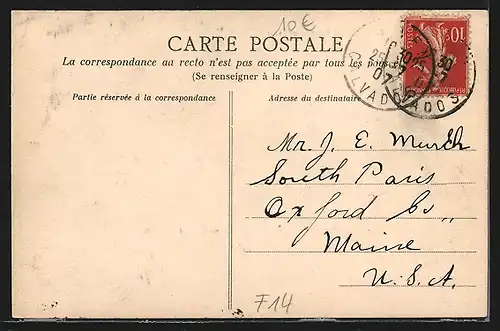 10€
CARTE POSTALE
La correspondance au recto n'est pas acceptée par tous les pays
(Se renseigner à la Poste)
Partie réservée à la correspondance
Adresse du destinataire
10
POSTES
CALVADOS
07
Mr. J. E. Murch
South Paris
Oxford Co.,
Maine
U.S.A.
F14